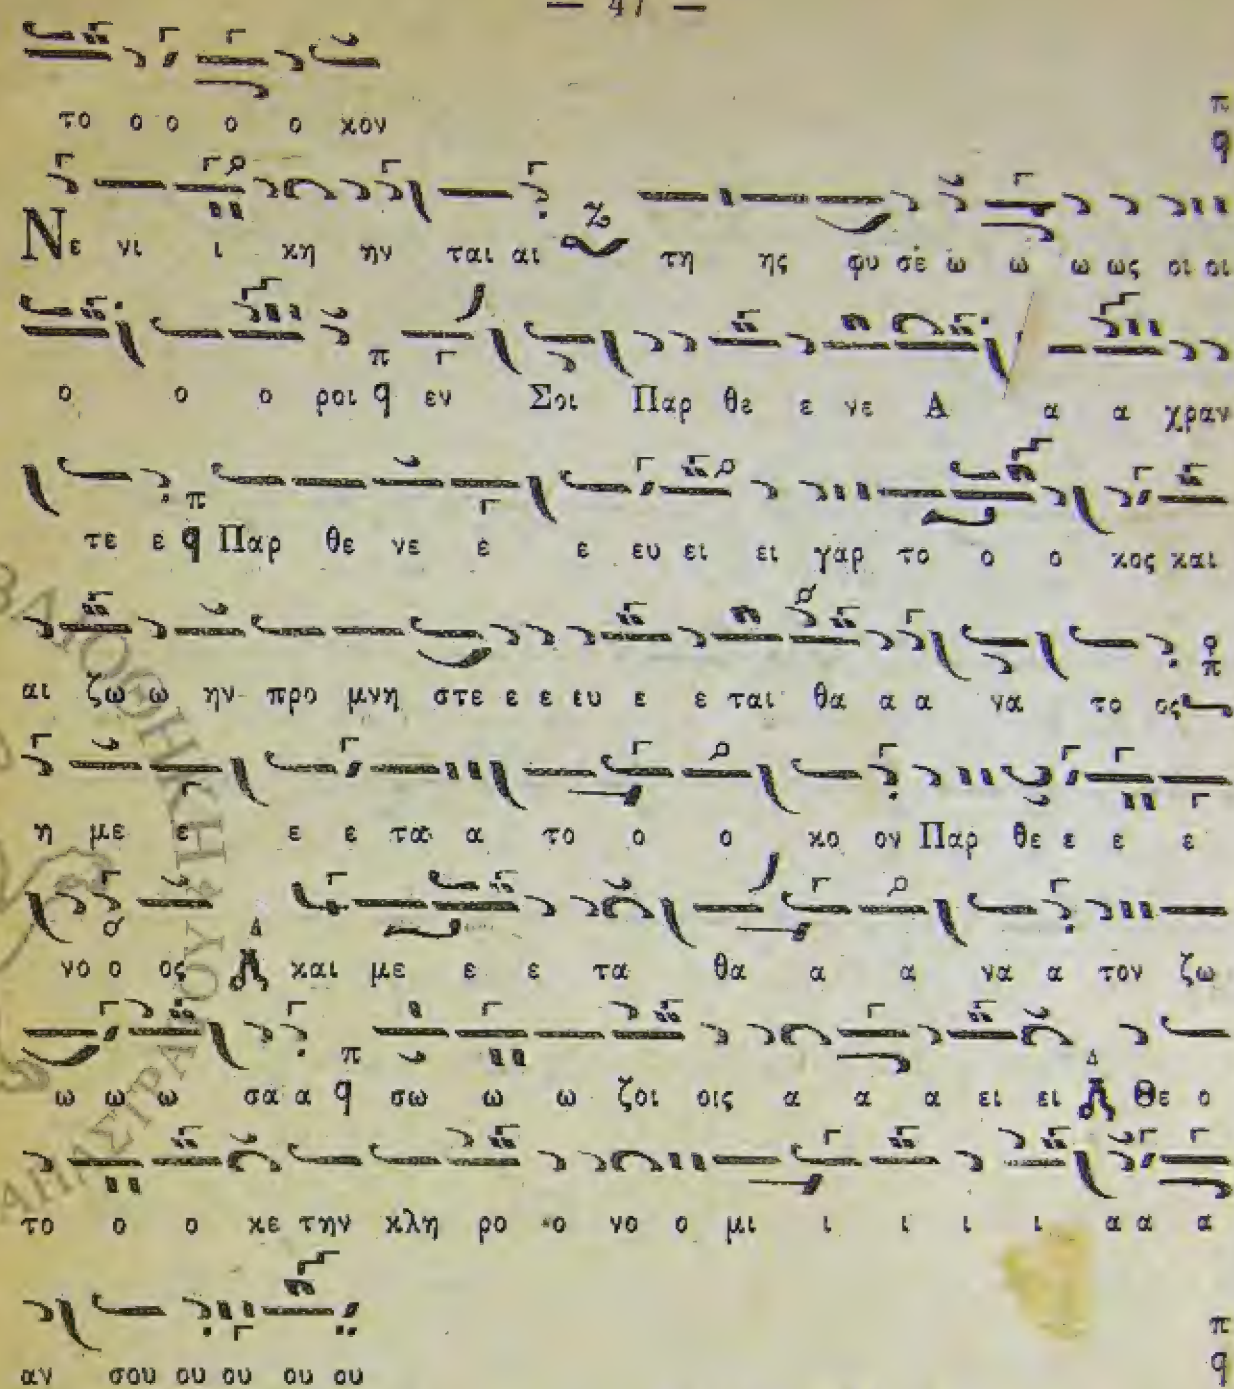 — 47 —
το ο ο ο ο κον
π
q
Νε νι ι κη ην ται αι τη ης φυ σέ ω ω ω ως οι οι
ο ο ο ροι π q εν Σοι Παρ θε ε νε Α α α χραν
τε ε π q Παρ θε νε ε ε ευ ει ει γαρ το ο ο κος και
αι ζω ω ην προ μνη στε ε ε ευ ε ε ται θα α α να το ος
η με ε ε ε τα α το ο ο κο ον Παρ θε ε ε ε
νο ο ος Δ και με ε ε τα θα α α να α τον ζω
ω ω ω σα α π q σω ω ω ζοι οις α α α ει ει Δ Θε ο
το ο ο κε την κλη ρο ο νο ο μι ι ι ι ι α α α
αν σου ου ου ου ου
π
q